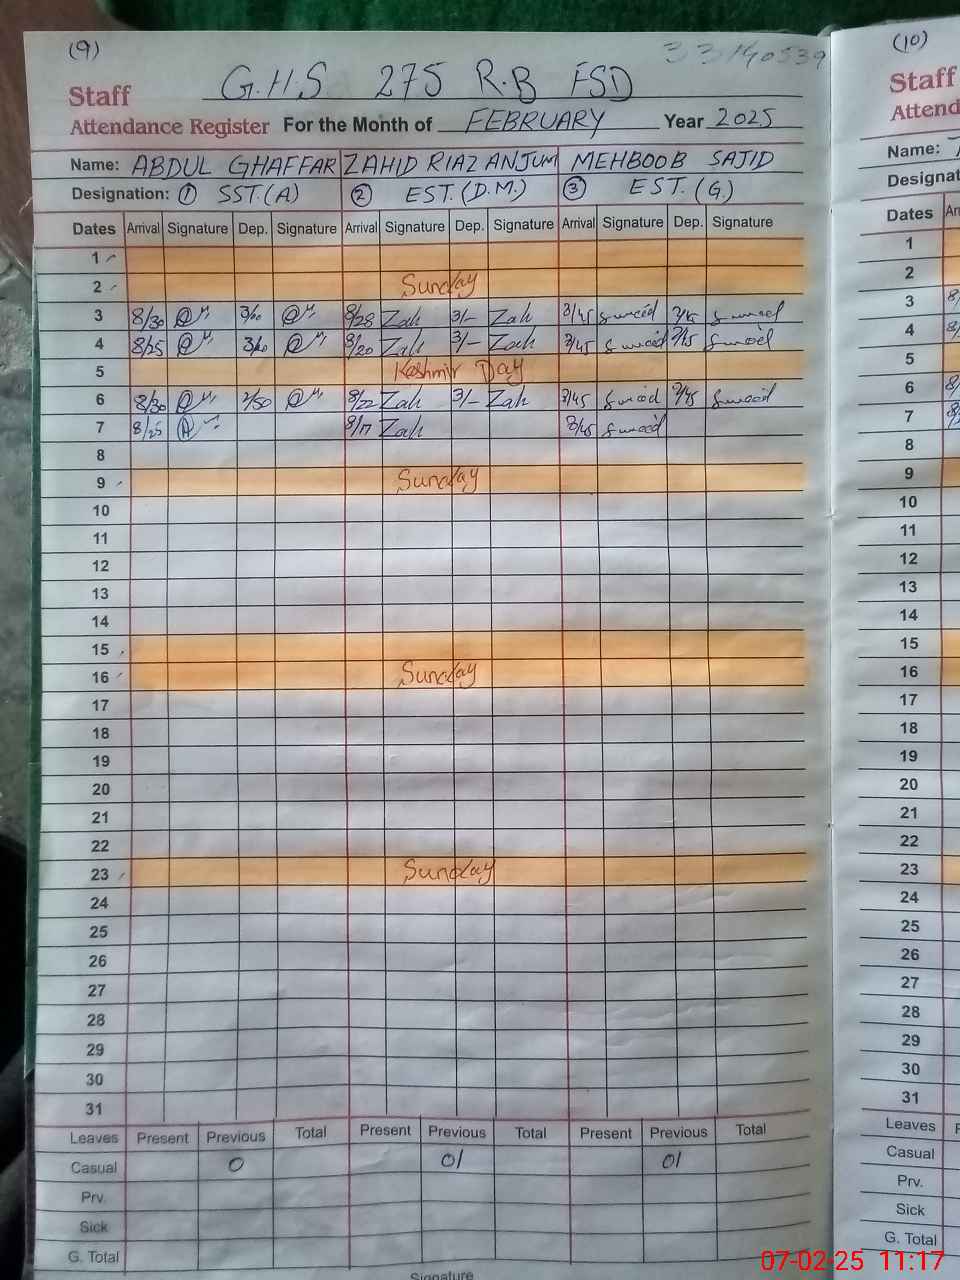 (9)
33140539
G.H.S 275 R.B FSD
Staff
Attendance Register For the Month of FEBRUARY Year 2025
Name: ABDUL GHAFFAR ZAHID RIAZ ANJUM MEHBOOB SAJID
Designation: ① SST (A) ② EST. (D.M.) ③ EST. (G.)
Dates Arrival Signature Dep. Signature Arrival Signature Dep. Signature Arrival Signature Dep. Signature
1
2 Sunday
3 8/30 3/00 8/28 Zah 3/- Zah
4 8/25 3/00 8/20 Zah 3/- Zah
5 Kashmir Day
6 8/30 2/50 8/22 Zah 3/- Zah
7 8/25 8/17 Zah
8
9 Sunday
10
11
12
13
14
15
16 Sunday
17
18
19
20
21
22
23 Sunday
24
25
26
27
28
29
30
31
Leaves Present Previous Total Present Previous Total Present Previous Total
Casual 0 01 01
Prv.
Sick
G. Total
Signature
(10)
Staff
Name:
Dates
1
2
3
4
5
6
7
8
9
10
11
12
13
14
15
16
17
18
19
20
21
22
23
24
25
26
27
28
29
30
31
Leaves
Casual
Prv.
Sick
G. Total
07-02-25 11:17